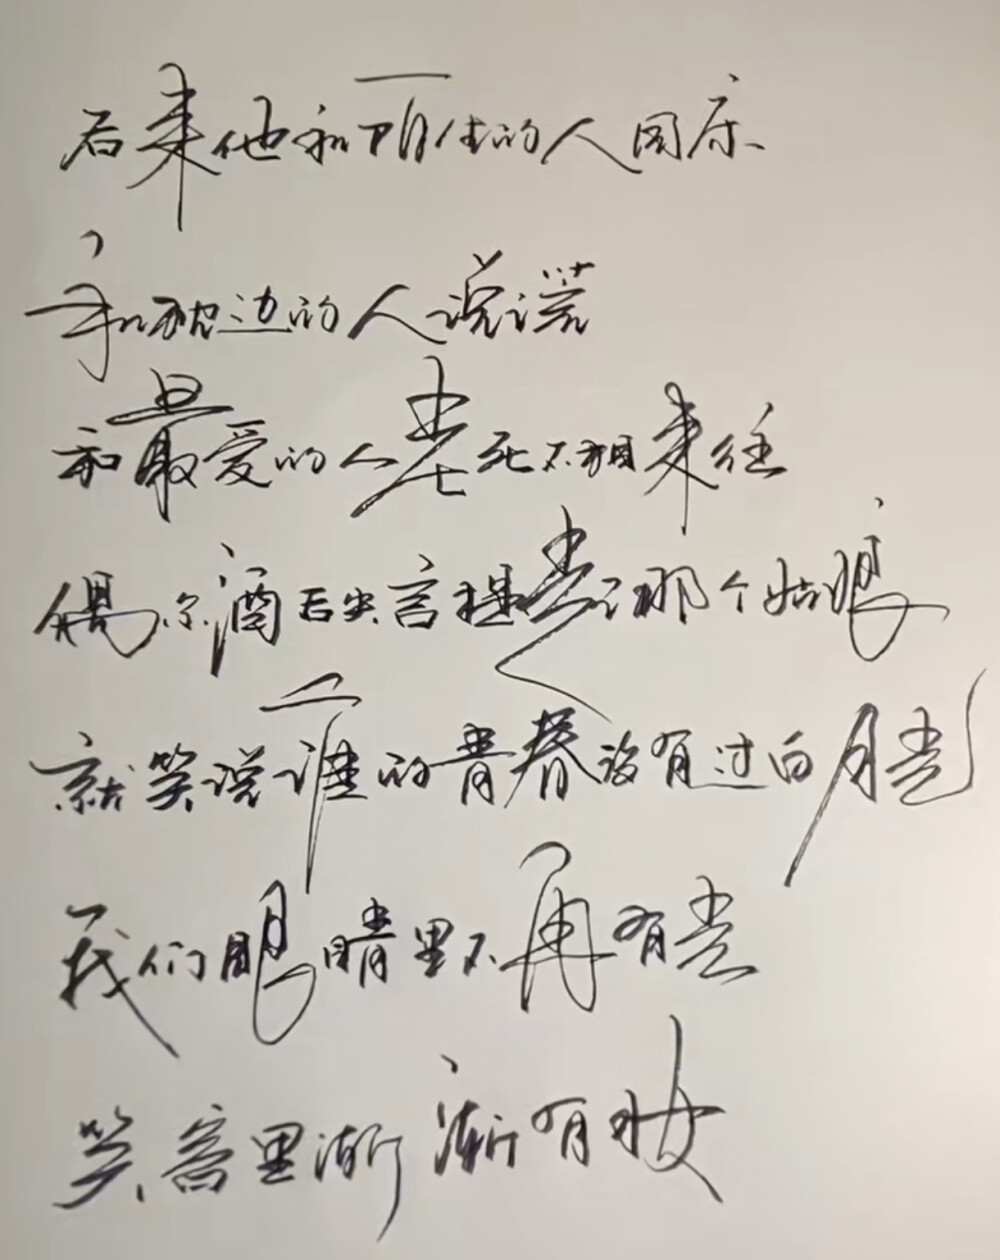 后来他和陌生的人同床
和枕边的人说谎
和最爱的人老死不相来往
偶尔酒后失言提起那个姑娘
就笑说谁的青春没有过白月光
我们眼睛里不再有光
笑容里渐渐有妆